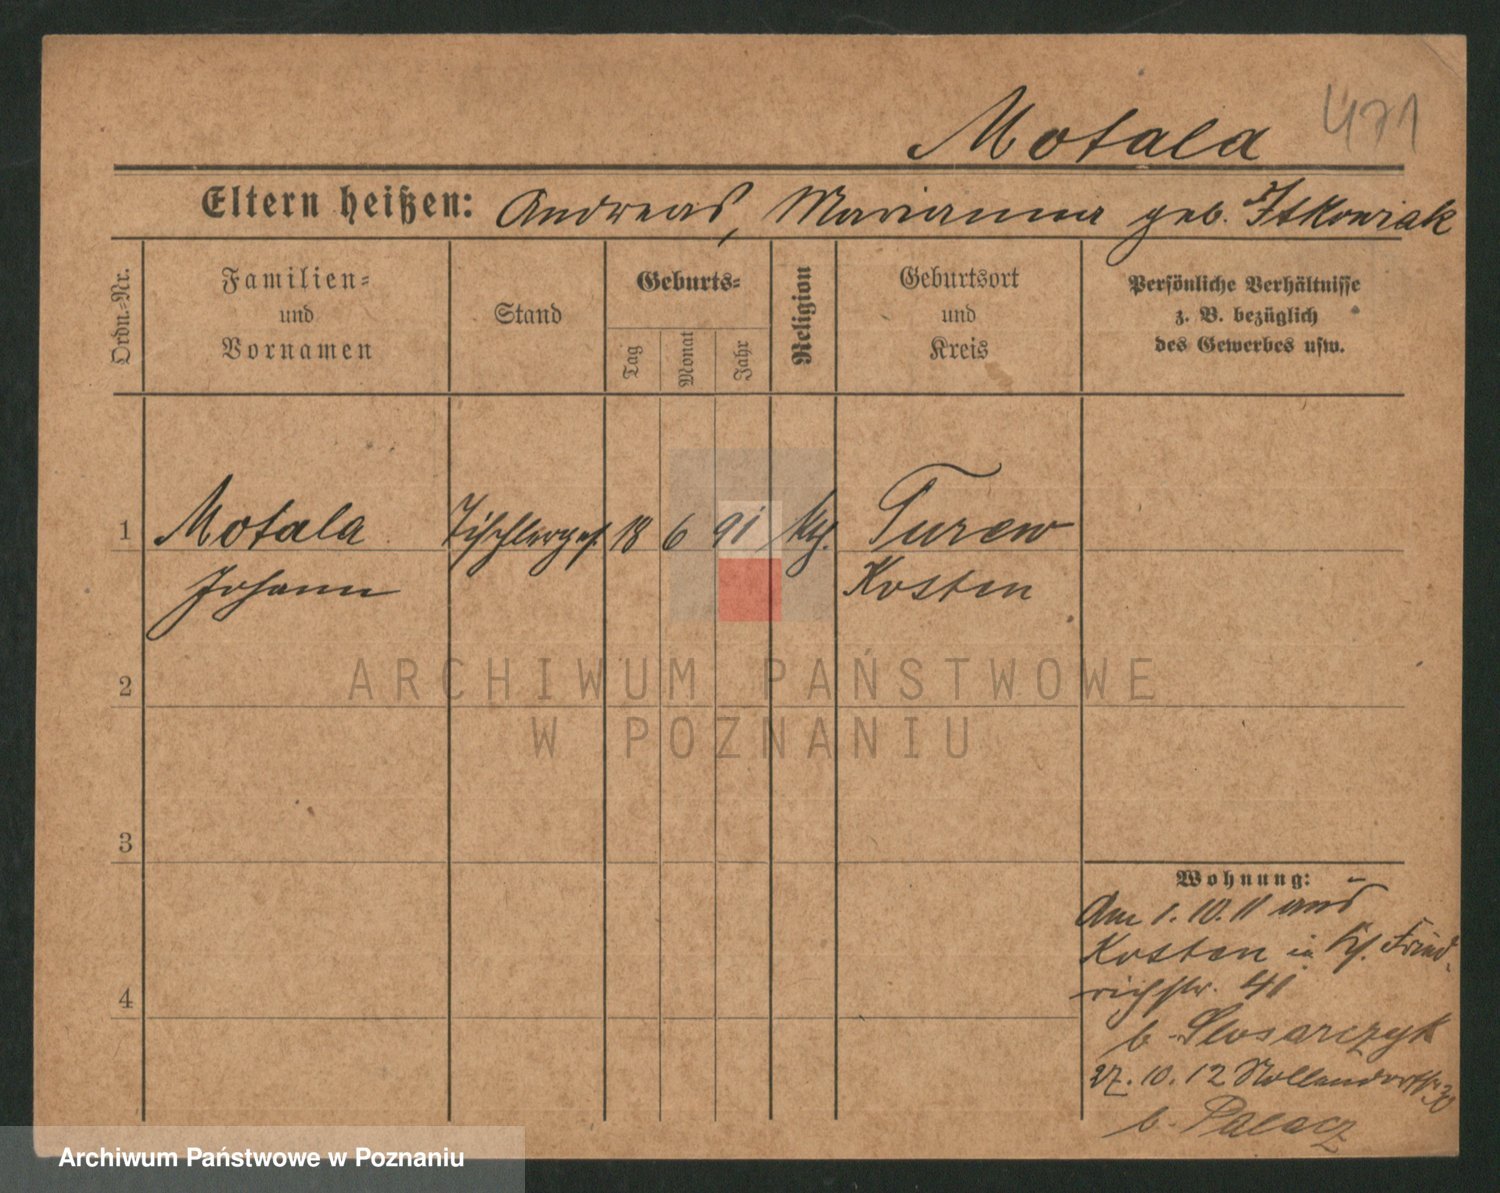 Motala 471
Eltern heißen: Andreas, Marianna geb. Itkowiak
Ordn.-Nr.
Familien-
und
Vornamen
Stand
Geburts-
Tag
Monat
Jahr
Religion
Geburtsort
und
Kreis
Persönliche Verhältnisse
z. B. bezüglich
des Gewerbes usw.
1 Motala Tischlerges. 18 6 91 kth. Turew
Johann Kosten
2
ARCHIWUM PAŃSTWOWE
W POZNANIU
3
Wohnung:
Am 1. 10. 11 aus
Kosten in Friedrichstr. 41
4
b. Slosarczyk
27. 10. 12 Nollendorfstr. 30
b. Palacz
Archiwum Państwowe w Poznaniu